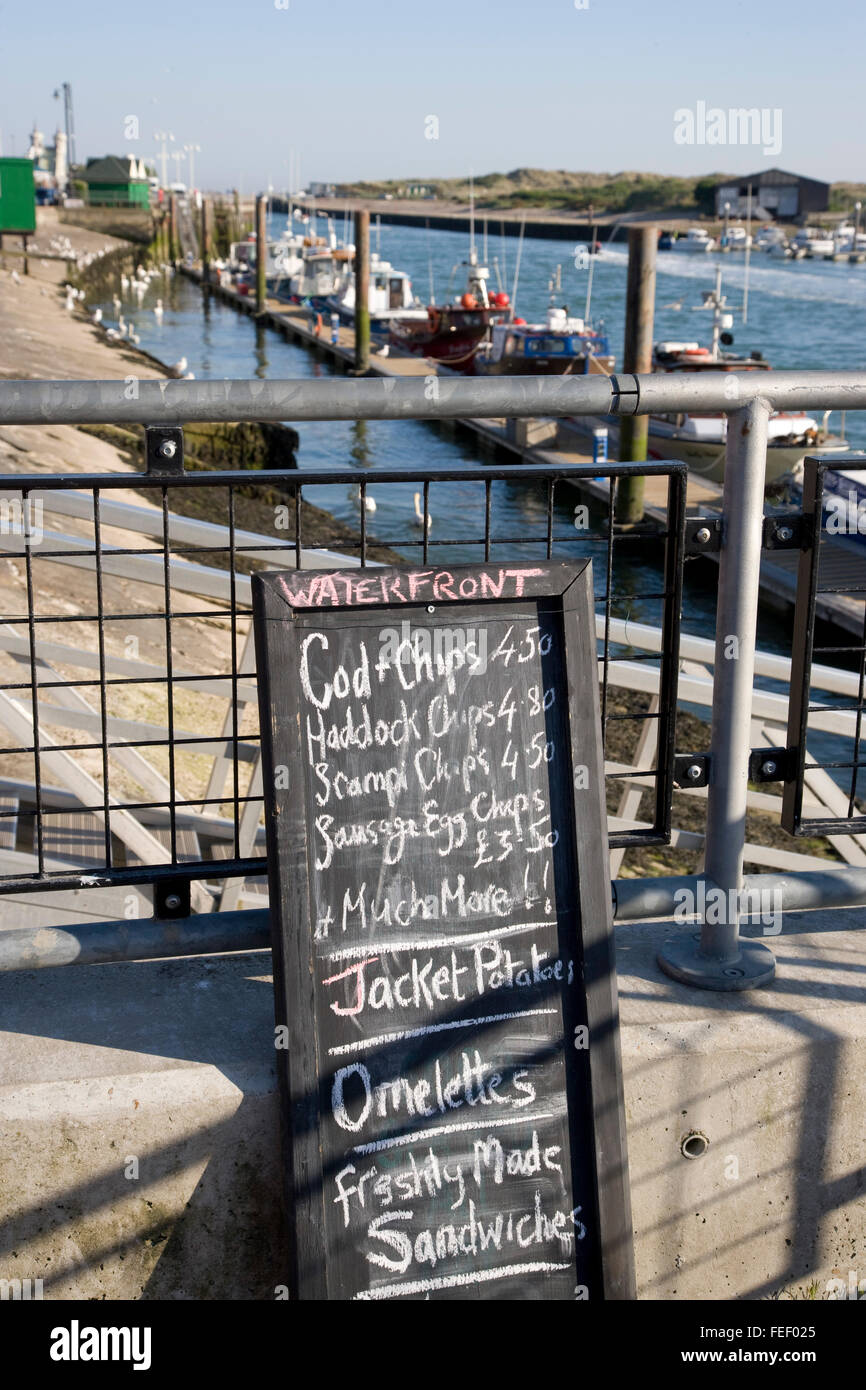 WATERFRONT
Cod + Chips 4.50
Haddock Chips 4.80
Scampi Chips 4.50
Sausage Egg Chips
£3.50
+ Much More !!
Jacket Potatoes
Omelettes
Freshly Made
Sandwiches
alamy
alamy
Image ID: FEF025
www.alamy.com